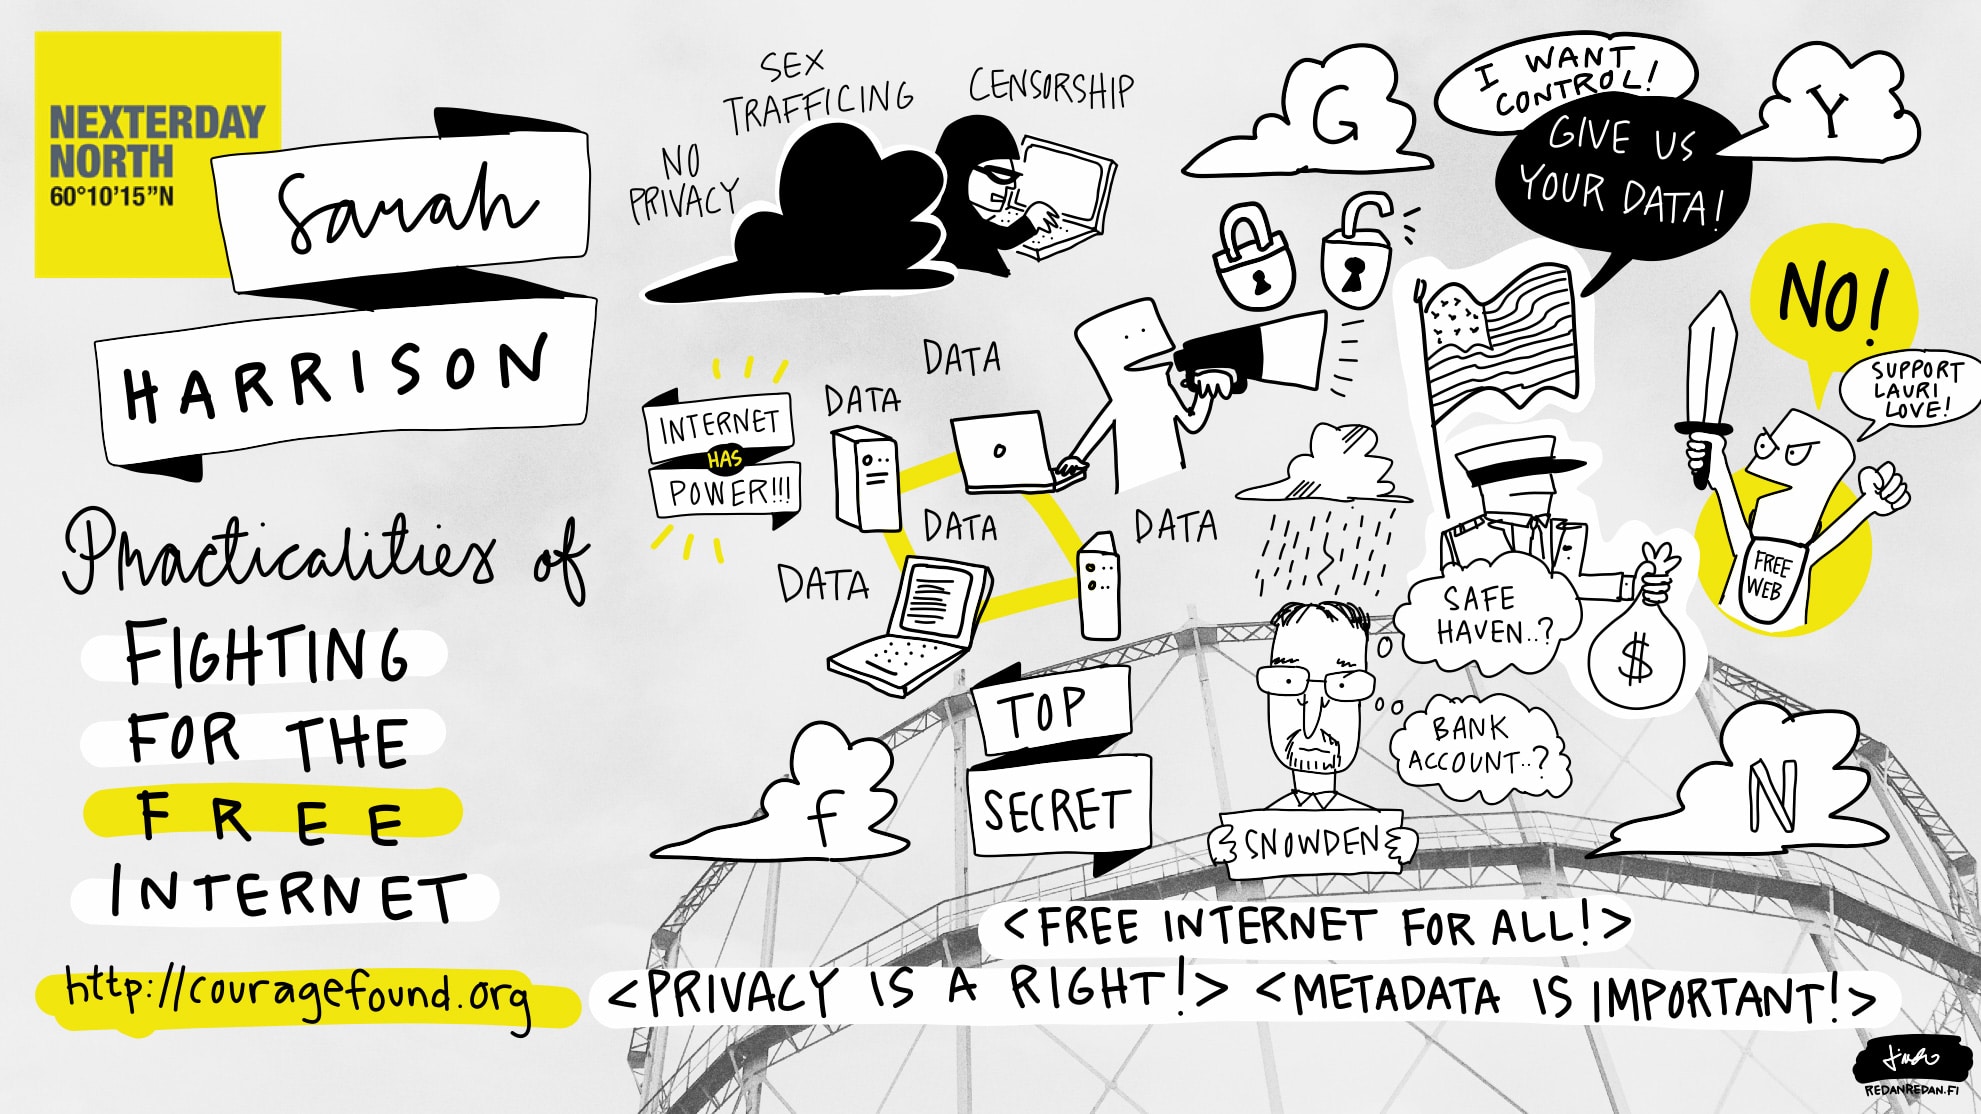 NEXTERDAY
NORTH
60°10'15"N
Sarah
HARRISON
Practicalities of
FIGHTING
FOR THE
FREE
INTERNET
http://couragefound.org
NO
PRIVACY
SEX
TRAFFICING
CENSORSHIP
G
I WANT
CONTROL!
GIVE US
YOUR DATA!
Y
NO!
SUPPORT
LAURI
LOVE!
FREE
WEB
INTERNET
HAS
POWER!!!
DATA
DATA
DATA
DATA
DATA
SAFE
HAVEN..?
$
BANK
ACCOUNT..?
TOP
SECRET
SNOWDEN
f
N
<FREE INTERNET FOR ALL!>
<PRIVACY IS A RIGHT!> <METADATA IS IMPORTANT!>
REDANREDAN.FI